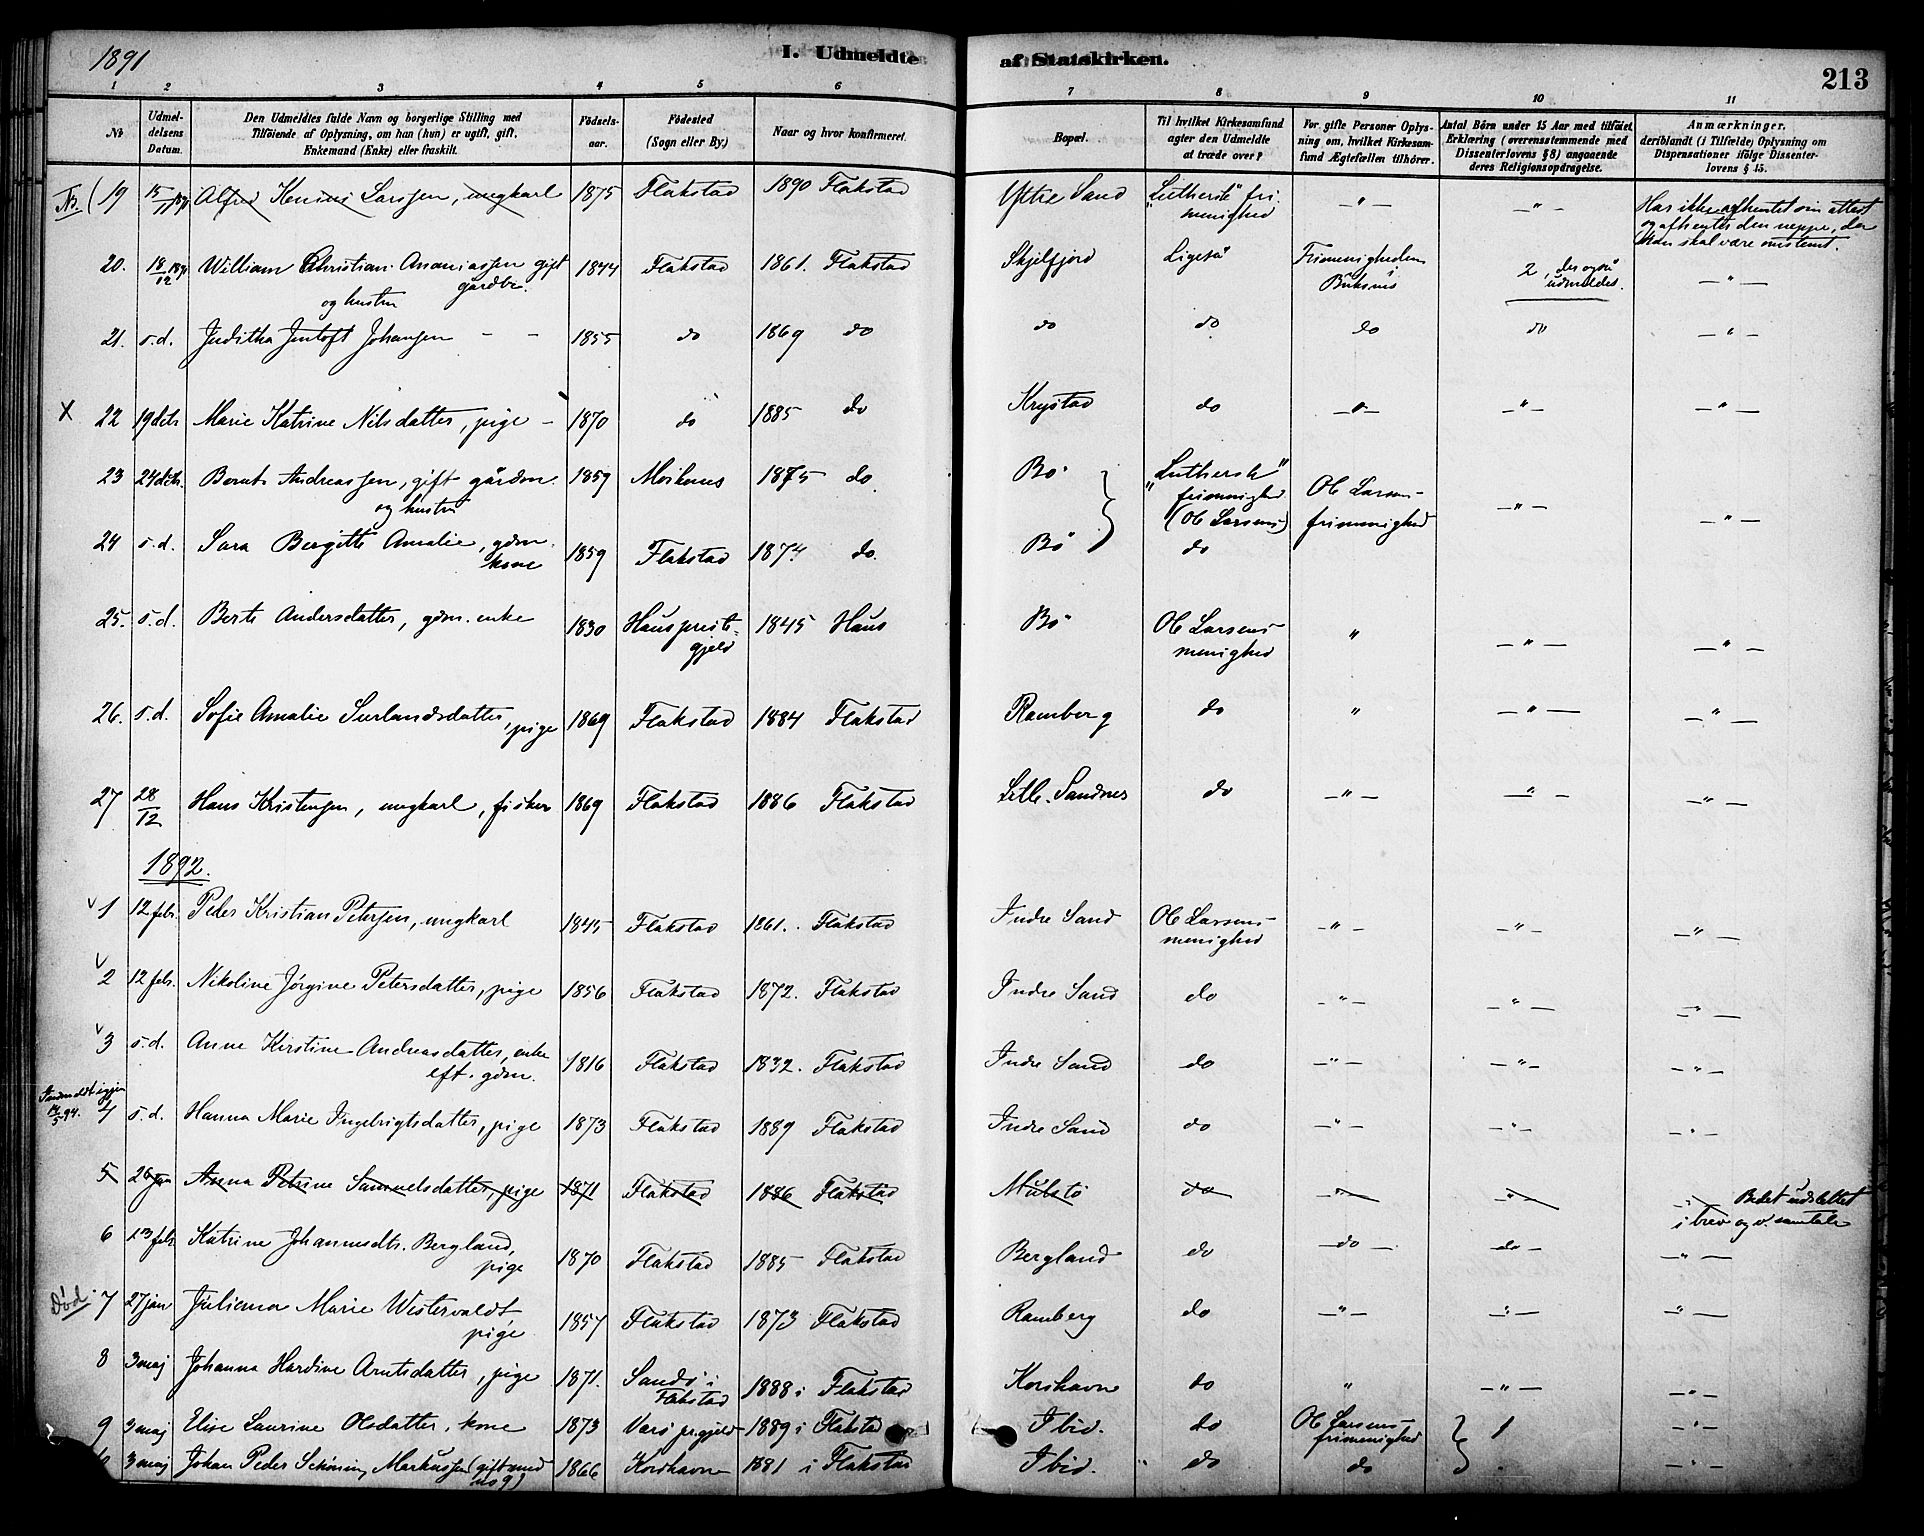 1891
I. Udmeldte af Statskirken.
213
1 2 3 4 5 6 7 8 9 10 11
No
Udmeldelsens Datum.
Den Udmeldtes fulde Navn og borgerlige Stilling med
Tilföiende af Oplysning, om han (hun) er ugift, gift,
Enkemand (Enke) eller fraskilt.
Födselsaar.
Födested
(Sogn eller By.)
Naar og hvor konfirmeret.
Bopæl.
Til hvilket Kirkesamfund
agter den Udmeldte
at træde over?
For gifte Personer Oplysning om, hvilket Kirkesamfund Ægtefællen tilhörer.
Antal Börn under 15 Aar med tilföiet
Erklæring (overensstemmende med
Dissenterlovens § 8) angaaende
deres Religionsopdragelse.
Anmærkninger,
deriblandt (i Tilfælde) Oplysning om
Dispensationer ifölge Dissenterlovens § 15.
NB. ( 19 15/11 1891 Alfred Larssen, ungkarl 1875 Flakstad 1890 Flakstad Yttre Sand "Luthersk" frimenighed — " — — " — Har ikke afhentet sin attest og afhenter den neppe, da han skal være omstemt.
20. 18/12 1891 William Christian Ananiassen gift gårdbr. og hustru 1844 Flakstad 1861. Flakstad Skjelfjord Ligeså Frimenigheden i Buksnes 2, der også udmeldes. — " —
21. s.d. Juditha Jentoft Johansen — — 1855 do 1869 do do do do do — " —
X 22 19 dcbr Marie Katrine Nilsdatter, pige — 1870 do 1885 do Krystad do — " — — " — — " —
23 24 dcbr. Bernt Andreassen, gift gårdm. og hustru 1859 Moskenes 1875 do. Bö "Luthersk" frimenighed (Ole Larsens) Ole Larsens frimenighed — " — — " —
24 s.d. Sara Bergitte Amalie, gdm. kone 1859 Flakstad 1874. do. Bö do
25. s.d. Berte Andersdatter, gdm. enke 1830 Haus prestegjeld 1845 Haus Bö Ole Larsens menighed " — " — — " —
26. s.d. Sofie Amalie Surlandsdatter, pige 1869 Flakstad 1884 Flakstad Ramberg do " — " — — " —
27 28/12 Hans Kristensen, ungkarl, fisker 1869 Flakstad 1886 Flakstad Lille Sandnes do — " — — " — — " —
1892.
v 1 12 febr. Peder Kristian Petersen, ungkarl 1845 Flakstad 1861. Flakstad Indre Sand Ole Larsens menighed — " — — " — — " —
v 2 12 febr. Nikoline Jörgine Petersdatter, pige 1856 Flakstad 1872. Flakstad Indre Sand do — " — — " — — " —
v 3 s.d. Anne Kirstine Andreasdatter, enke eft. gdm. 1816 Flakstad 1832. Flakstad Indre Sand do — " — — " — — " —
Indmeldt igjen
4 s.d. Hanna Marie Ingebrigtsdatter, pige 1873 Flakstad 1889 Flakstad Indre Sand do — " — — " — — " —
5 26 jan Anna Petrine Samuelsdatter, pige 1871 Flakstad 1886 Flakstad Mulstö do — " — — " — Bedet udslettet i brev og v. samtale
6 13 febr Katrine Johannesdtr. Bergland, pige 1870 Flakstad 1885 Flakstad Bergland do — do — do — — " —
Död. 7 27 jan Juliema Marie Westervaldt, pige 1857 Flakstad 1873 Flakstad Ramberg do — " — — " — — " —
8 3 maj Johanna Hardine Arntsdatter, pige 1871. Sandö i Flakstad 1888 i Flakstad Korshavn do " — " — — " —
9 3 maj Elise Laurine Olsdatter, kone 1873 Værö prgjeld 1889 i Flakstad Ibid. do Ole Larsens frimenighed 1 — " —
3 maj Johan Peder Schöning Markussen (gift med no 9) 1866 Korshavn 1881 i Flakstad Ibid. do do — " —